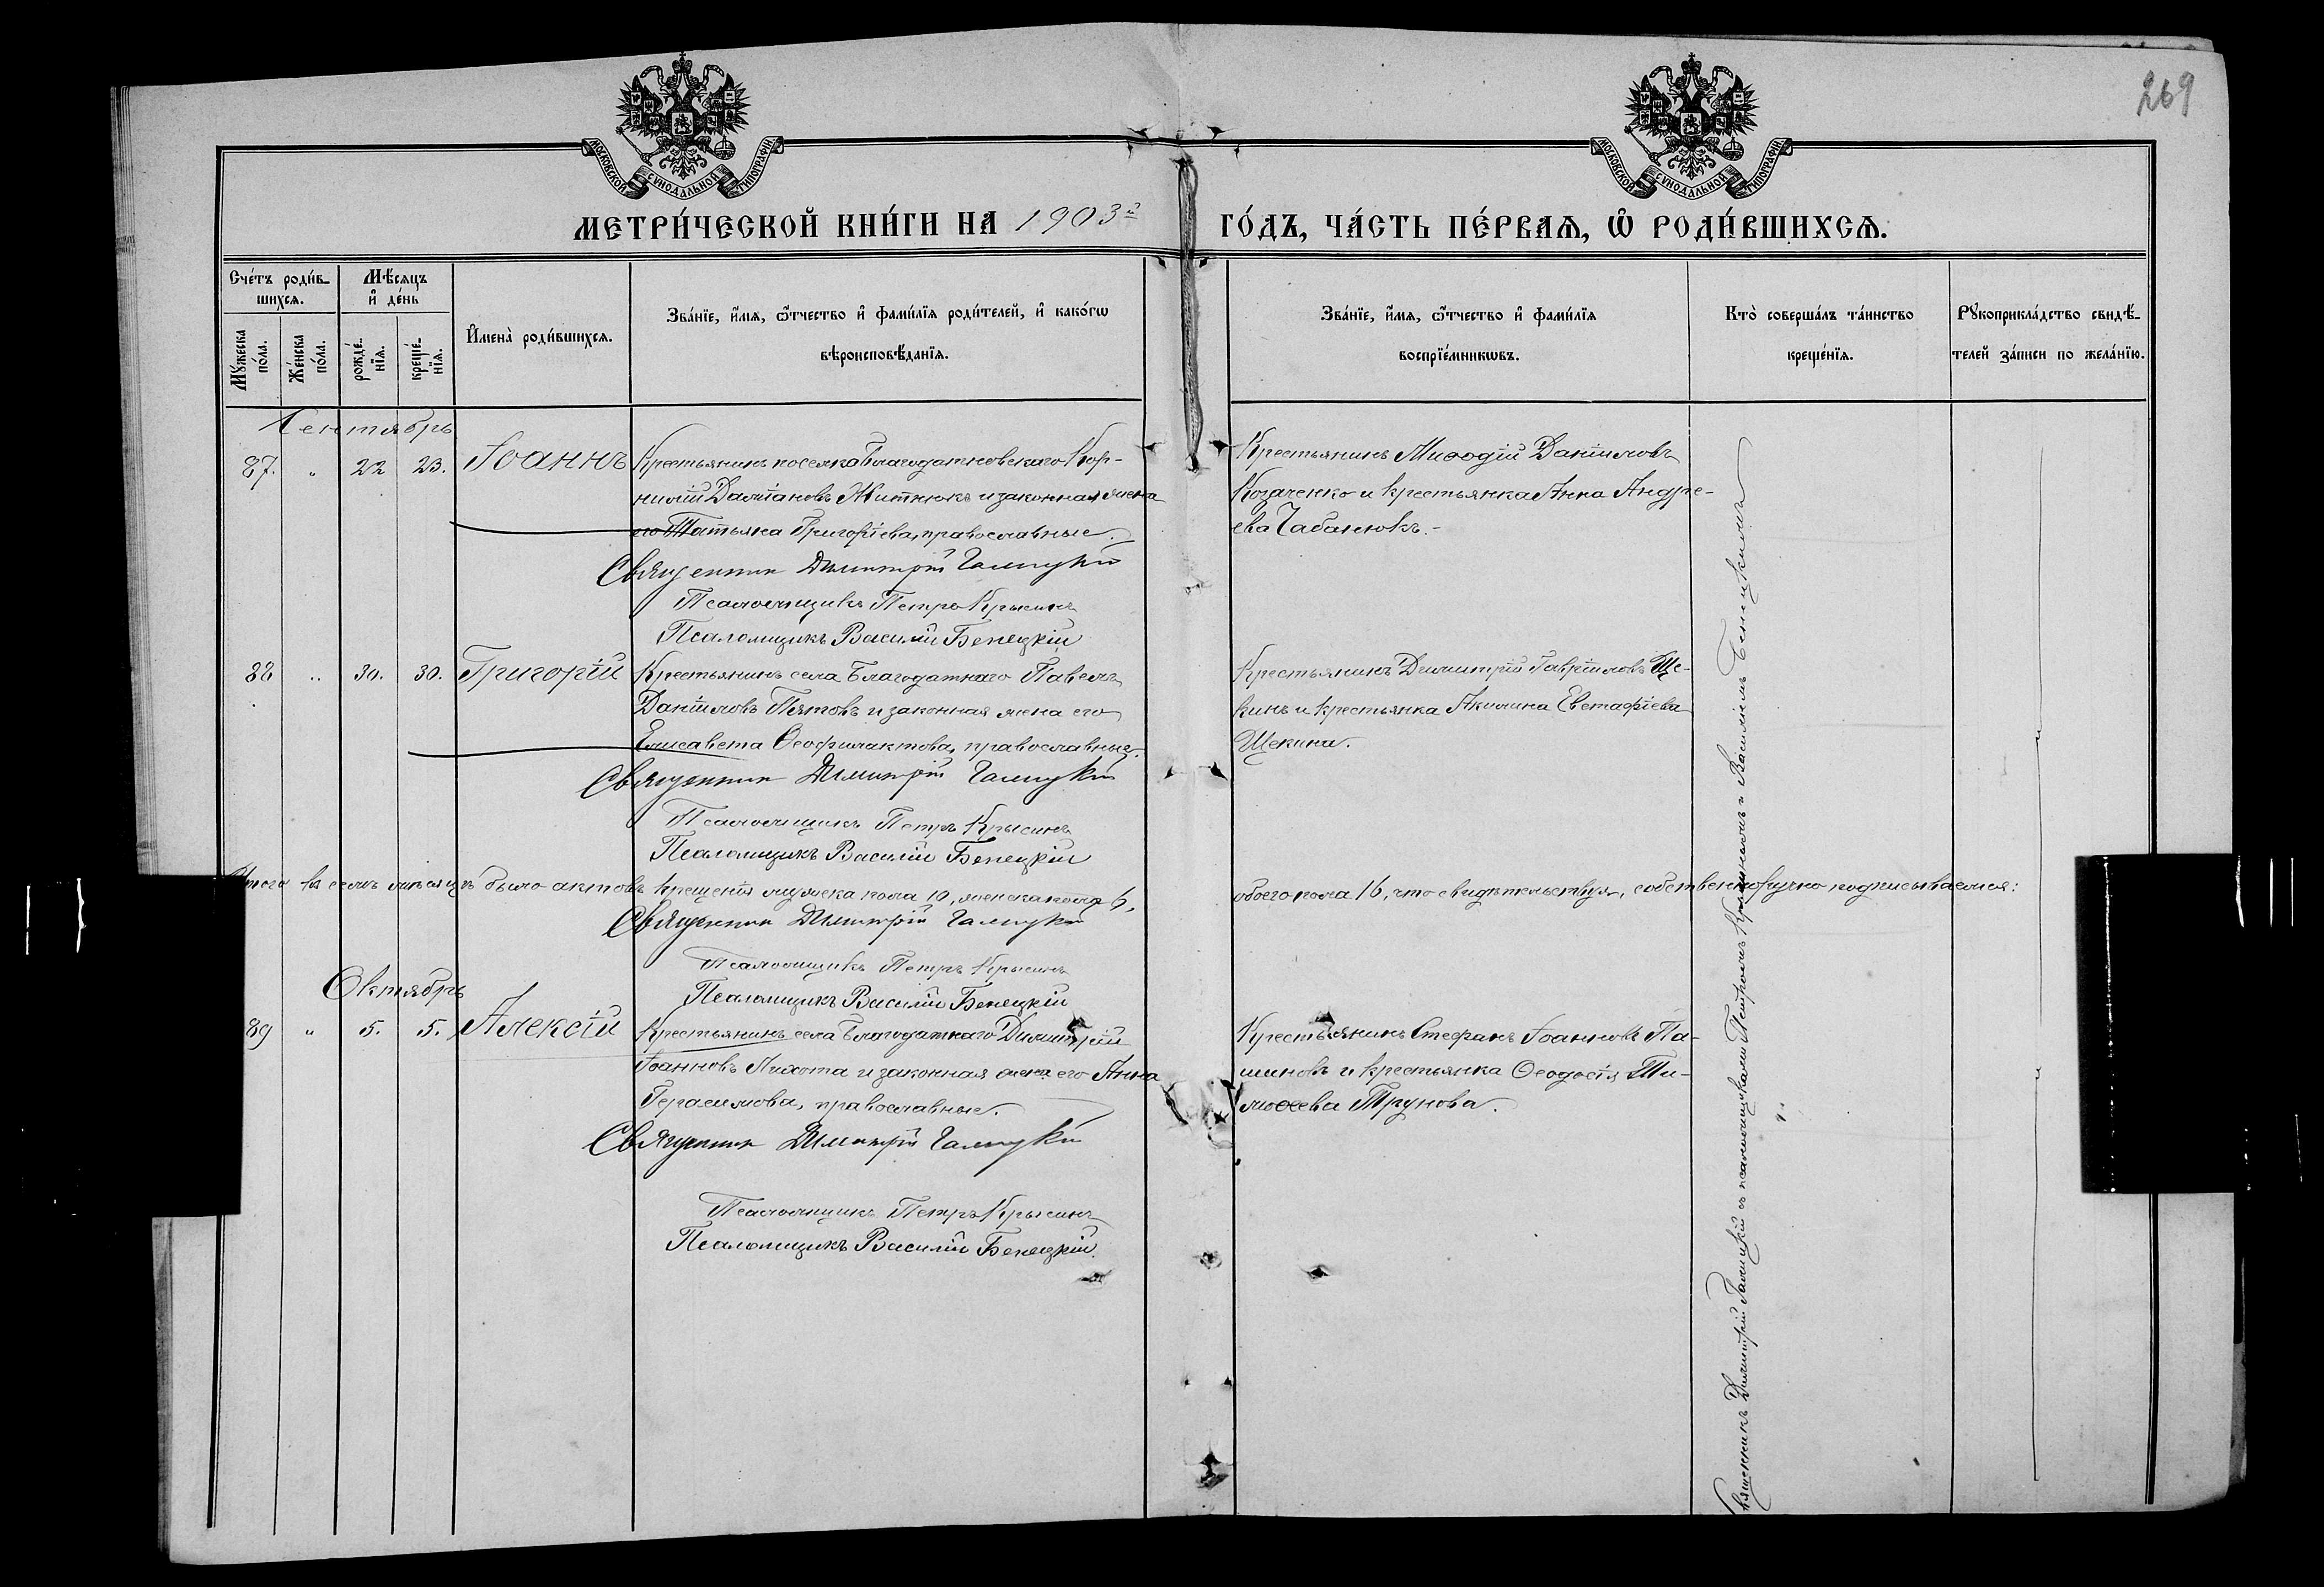 269
МОСКОВСКОЙ СѴНОДАЛЬНОЙ ТИПОГРАФІИ
МОСКОВСКОЙ СѴНОДАЛЬНОЙ ТИПОГРАФІИ
МЕТРИ́ЧЕСКОЙ КНИ́ГИ НА 1903й ГО́ДЪ, ЧА́СТЬ ПЕ́РВАѦ, Ѽ РОДИ́ВШИХСѦ.
Сче́тъ роди́в-
шихсѧ.
Мѣ́сѧцъ
и҆ де́нь
Мꙋ́жеска
по́ла.
Же́нска
по́ла.
рожде́-
нїѧ.
креще́-
нїѧ.
И҆мена̀ роди́вшихсѧ.
Зва́нїе, и҆́мѧ, ѻ҆́тчество и҆ фами́лїѧ роди́телей, и҆ како́гѡ
вѣроисповѣ́данїѧ.
Зва́нїе, и҆́мѧ, ѻ҆́тчество и҆ фами́лїѧ
воспрїе́мникѡвъ.
Кто̀ соверша́лъ та́инство
креще́нїѧ.
Рꙋкоприкла́дство свидѣ́-
телей за́писи по жела́нїю.
Сентябрь
87. " 22 23. Іоаннъ
Крестьянинъ поселка Благодатновскаго Кор-
нилій Даміановъ Житнюкъ и законная жена
его Татьяна Григоріева, православные.
Священник Димитрій Галицкій
Псаломщикъ Петръ Крысинъ
Псаломщикъ Василій Бенецкій
Крестьянинъ Миѳодій Даніиловъ
Козаченко и крестьянка Анна Андре-
ева Чабанюкъ.-
88 " 30. 30. Григорій
Крестьянинъ села Благодатнаго Павелъ
Даніиловъ Пятовъ и законная жена его
Елисавета Ѳеофилактова, православные.
Священник Димитрій Галицкій
Псаломщикъ Петръ Крысинъ
Псаломщикъ Василій Бенецкій
Крестьянинъ Димитрій Гавріиловъ Ще-
кинъ и крестьянка Акилина Евстафіева
Щекина.
Итого въ семъ мѣсяцѣ было актовъ крещенія мужеска пола 10, женска пола 6, обоего пола 16, что свидѣтельствуя, собственноручно подписываемся:
Священник Димитрій Галицкій
Псаломщикъ Петръ Крысинъ
Псаломщикъ Василій Бенецкій
Октябрь
89 " 5. 5. Алексій
Крестьянинъ села Благодатнаго Димитрій
Іоанновъ Лихота и законная жена его Анна
Герасимова, православные.
Священник Димитрій Галицкій
Псаломщикъ Петръ Крысинъ
Псаломщикъ Василій Бенецкій.
Крестьянинъ Стефанъ Іоанновъ Па-
шиновъ и крестьянка Ѳеодосія Ти-
моѳеева Трунова.
Священникъ Димитрій Галицкій съ псаломщиками Петромъ Крысинымъ и Василіемъ Бенецкимъ